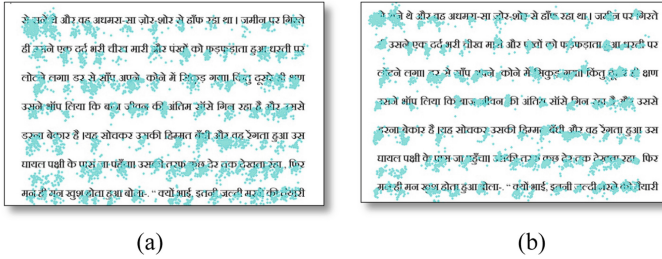 से सने थे और वह अधमरा-सा ज़ोर-शोर से हाँफ रहा था । जमीन पर गिरते
ही उसने एक दर्द भरी चीख मारी और पंखों को फड़फड़ाता हुआ धरती पर
लोटने लगा। डर से साँप अपने कोने में सिकुड़ गया। किंतु दूसरे ही क्षण
उसने भाँप लिया कि बाज जीवन की अंतिम साँसे गिन रहा है और उससे
डरना बेकार है ।यह सोचकर उसकी हिम्मत बँधी और वह रेंगता हुआ उस
घायल पक्षी के पास जा पहुँचा। उसकी तरफ कुछ देर तक देखता रहा , फिर
मन ही मन खुश होता हुआ बोला-, “ क्यों भाई, इतनी जल्दी मरने की तैयारी
(a)
से सने थे और वह अधमरा-सा ज़ोर-शोर से हाँफ रहा था । जमीन पर गिरते
ही उसने एक दर्द भरी चीख मारी और पंखों को फड़फड़ाता हुआ धरती पर
लोटने लगा। डर से साँप अपने कोने में सिकुड़ गया। किंतु दूसरे ही क्षण
उसने भाँप लिया कि बाज जीवन की अंतिम साँसे गिन रहा है और उससे
डरना बेकार है ।यह सोचकर उसकी हिम्मत बँधी और वह रेंगता हुआ उस
घायल पक्षी के पास जा पहुँचा। उसकी तरफ कुछ देर तक देखता रहा , फिर
मन ही मन खुश होता हुआ बोला-, “ क्यों भाई, इतनी जल्दी मरने की तैयारी
(b)